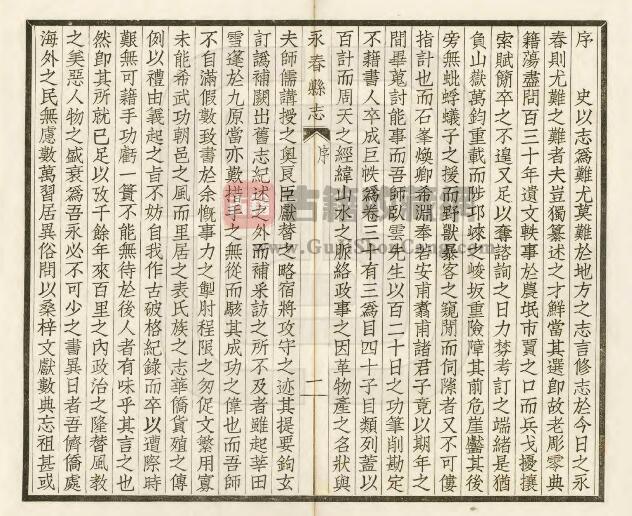 序
史以志爲難尤莫難於地方之志言修志於今日之永
春則尤難之難者夫豈獨纂述之才鮮當其選卽故老彫零典
籍蕩盡問百三十年遺文軼事於農氓市賈之口而兵戈擾攘
索賦簡卒之不遑又足以奪諮詢之日力棼考訂之端緒是猶
負山嶽萬鈞重載而陟邛崍之峻坂重險障其前危崖齾其後
旁無蚍蜉蟻子之援而野獸暴客之窺閒而伺隙者又不可僂
指計也而石峯煥卿希淵奉若安甫翥甫諸君子竟以期年之
閒畢蒐討能事而吾師臥雲先生以百二十日之功筆削勘定
不藉書人卒成巨帙爲卷三十有三爲目四十子目類列蓋以
百計而周天之經緯山水之脈絡政事之因革物產之名狀與
永春縣志
序
一
夫師儒講授之奧良臣獻替之略宿將攻守之迹其提要鉤玄
訂譌補闕出舊志紀述之外而補采訪之所不及者雖起莘田
雪逢於九原當亦數楷手之無從而駭其成功之偉也而吾師
不自滿假數致書於余慨事力之掣肘程限之匆促文繁用寡
未能希武功朝邑之風而里居之表氏族之志華僑貨殖之傳
例以禮由義起之旨不妨自我作古破格紀錄而卒以遭際時
艱無可藉手功虧一簣不能無待於後人者有味乎其言之也
然卽其所就已足以攷千餘年來百里之內政治之隆替風教
之美惡人物之盛衰爲吾永必不可少之書異日者吾儕僑處
海外之民無慮數萬習居異俗問以桑梓文獻數典忘祖甚或
古籍收藏網
www.GuJiShouCang.com